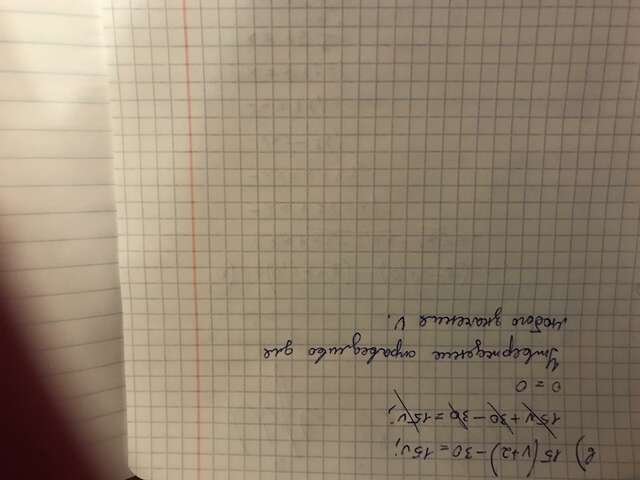 в) 15(v+2)-30=15v;
15v+30-30=15v;
0=0
Утверждение справедливо для
любого значения v.